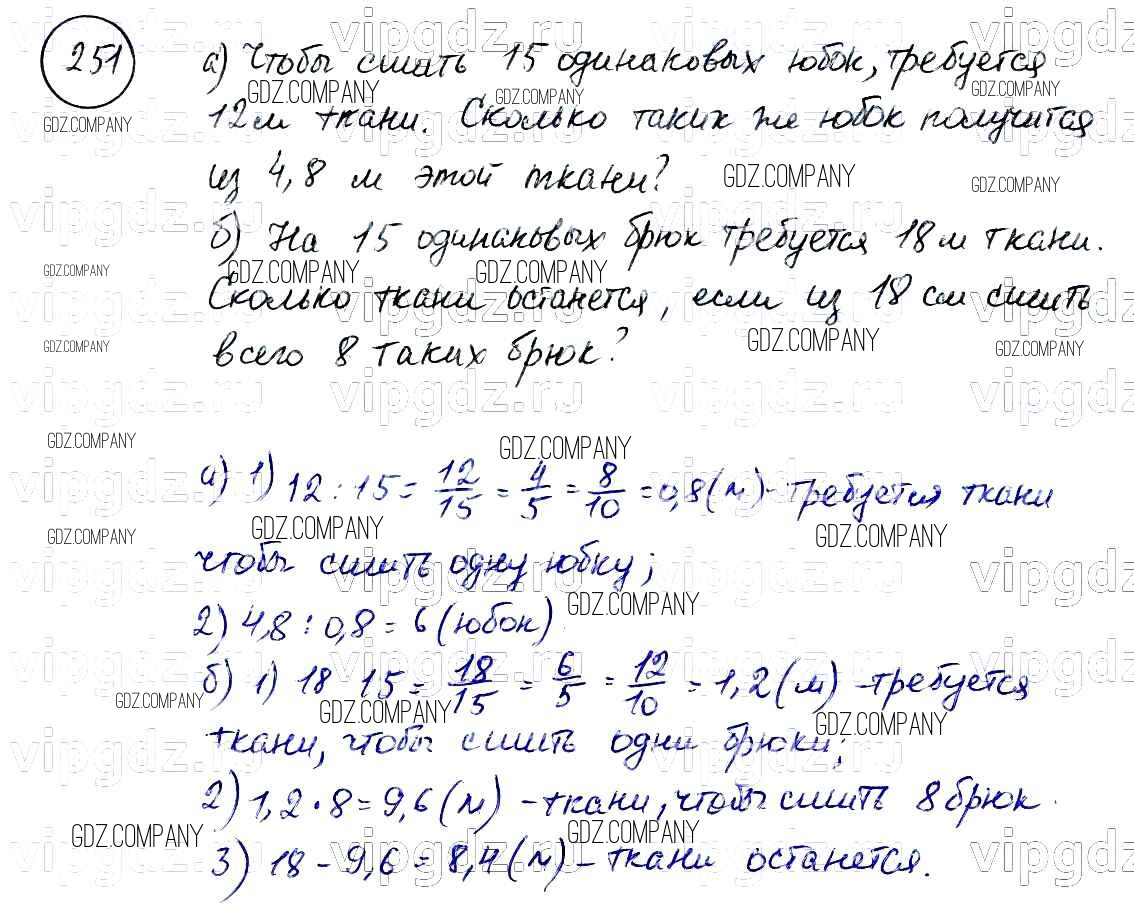 251
а) Чтобы сшить 15 одинаковых юбок, требуется
12 м ткани. Сколько таких же юбок получится
из 4,8 м этой ткани?
б) На 15 одинаковых брюк требуется 18 м ткани.
Сколько ткани останется, если из 18 см сшить
всего 8 таких брюк?
а) 1) 12 : 15 = 12/15 = 4/5 = 8/10 = 0,8 (м) - требуется ткани
чтобы сшить одну юбку;
2) 4,8 : 0,8 = 6 (юбок)
б) 1) 18 15 = 18/15 = 6/5 = 12/10 = 1,2 (м) - требуется
ткани, чтобы сшить одни брюки;
2) 1,2 · 8 = 9,6 (м) - ткани, чтобы сшить 8 брюк.
3) 18 - 9,6 = 8,4 (м) - ткани останется.
GDZ.COMPANY
vipgdz.ru